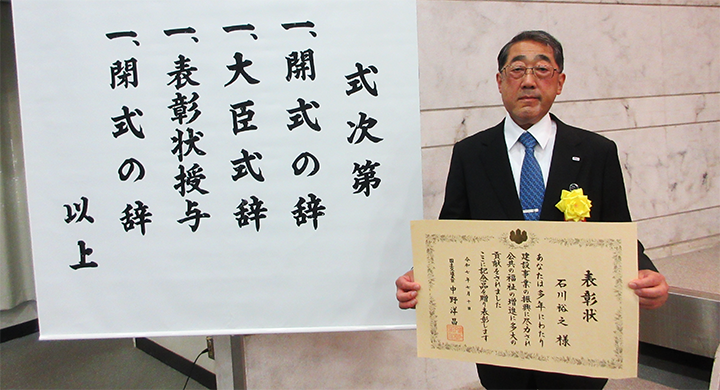 式次第
一、開式の辞
一、大臣式辞
一、表彰状授与
一、閉式の辞
以上
表彰状
石川裕之様
あなたは多年にわたり
建設事業の振興に尽力され
公共の福祉の増進に多大の
貢献をされました
ここに記念品を贈り表彰します
令和七年七月十日
国土交通大臣 中野洋昌